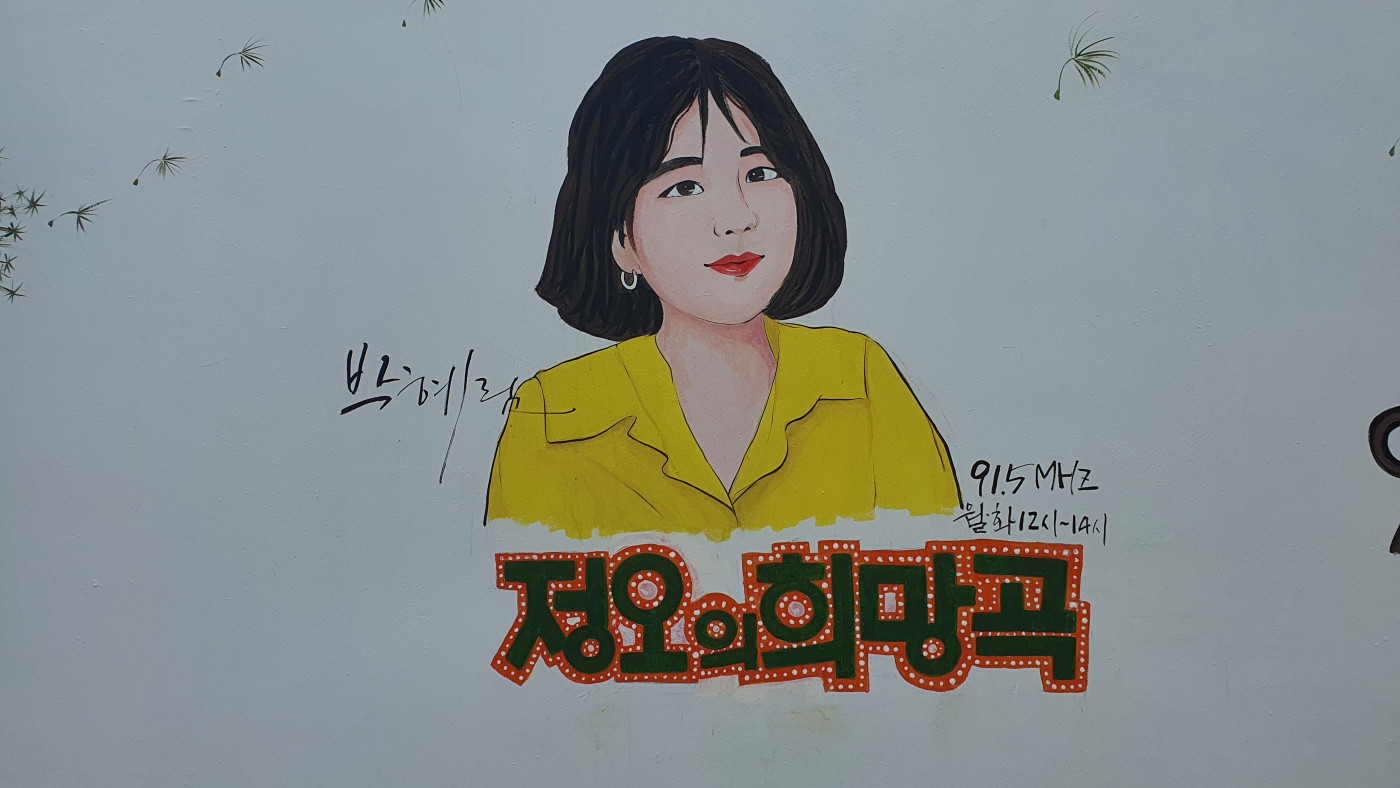 박혜림
91.5 MHZ
월·화 12시~14시
정오의희망곡